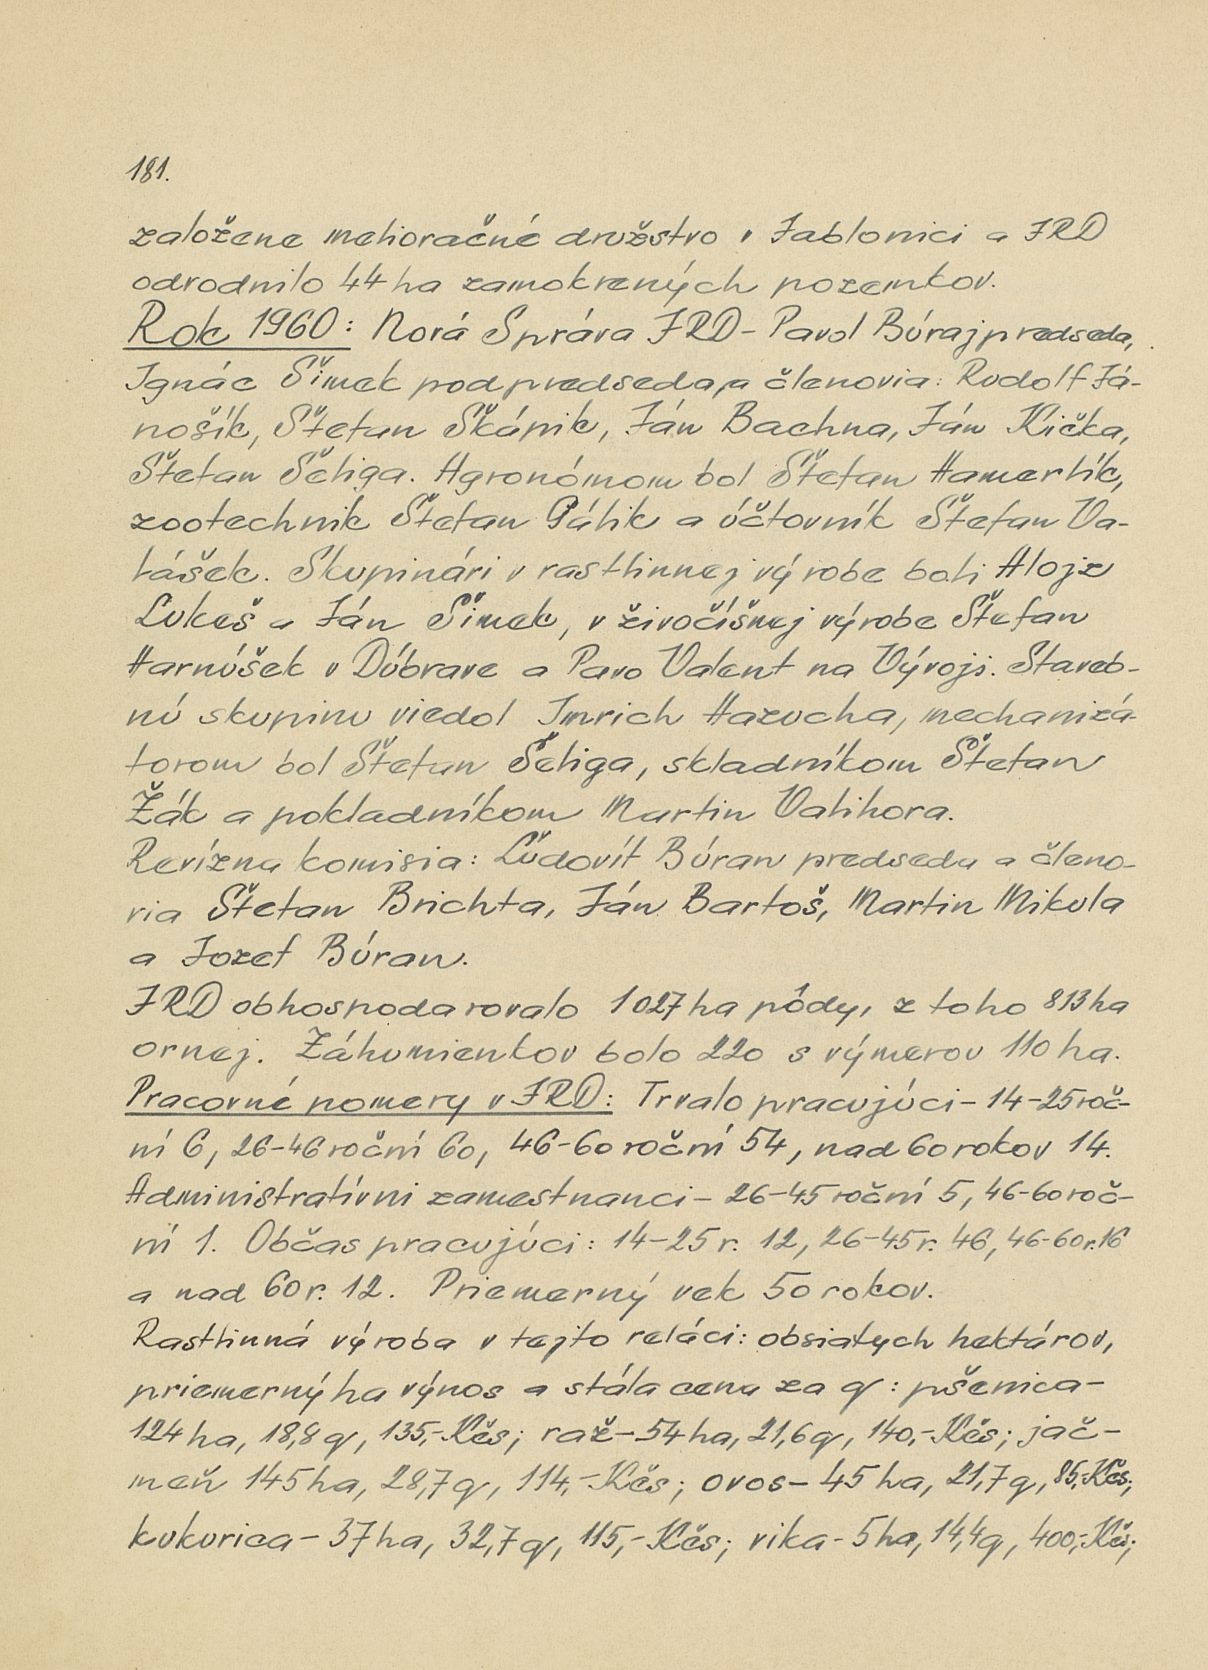 181.
založene melioračné družstvo v Jablonici a JRD
odvodnilo 44 ha zamokrených pozemkov.
Rok 1960: Nová Správa JRD - Pavol Búraj predseda,
Ignác Šimek podpredseda, a členovia: Rudolf Já-
nošík, Štefan Škápik, Ján Bachna, Ján Kička,
Štefan Šeliga. Agronómom bol Štefan Hamerlík,
zootechnik Štefan Gálik a účtovník Štefan Va-
lášek. Skupinári v rastlinnej výrobe boli Alojz
Lukeš a Ján Šimek, v živočíšnej výrobe Štefan
Harnúšek v Dúbrave a Pavo Valent na Vývoji. Staveb-
nú skupinu viedol Imrich Hazucha, mechanizá-
torom bol Štefan Šeliga, skladníkom Štefan
Žák a pokladníkom Martin Valihora.
Revízna komisia: Ľudovít Búran predseda a členo-
via Štefan Brichta, Ján Bartoš, Martin Mikula
a Jozef Búran.
JRD obhospodarovalo 1027 ha pôdy, z toho 813 ha
ornej. Záhumienkov bolo 220 s výmerov 110 ha.
Pracovné pomery v JRD: Trvalo pracujúci - 14-25 roč-
ní 6, 26-46 roční 60, 46-60 roční 54, nad 60 rokov 14.
Administratívni zamestnanci - 26-45 roční 5, 46-60 roč-
ní 1. Občas pracujúci: 14-25 r. 12, 26-45 r. 46, 46-60 r. 16
a nad 60 r. 12. Priemerný vek 50 rokov.
Rastlinná výroba v tejto reláci: obsiatych hektárov,
priemerný ha výnos a stála cena za q: pšenica -
124 ha, 18,8 q, 135,- Kčs; raž - 54 ha, 21,6 q, 140,- Kčs; jač-
meň 145 ha, 28,7 q, 114,- Kčs; ovos - 45 ha, 21,7 q, 85,- Kčs;
kukurica - 37 ha, 32,7 q, 115,- Kčs; vika - 5 ha, 14,4 q, 400,- Kčs;